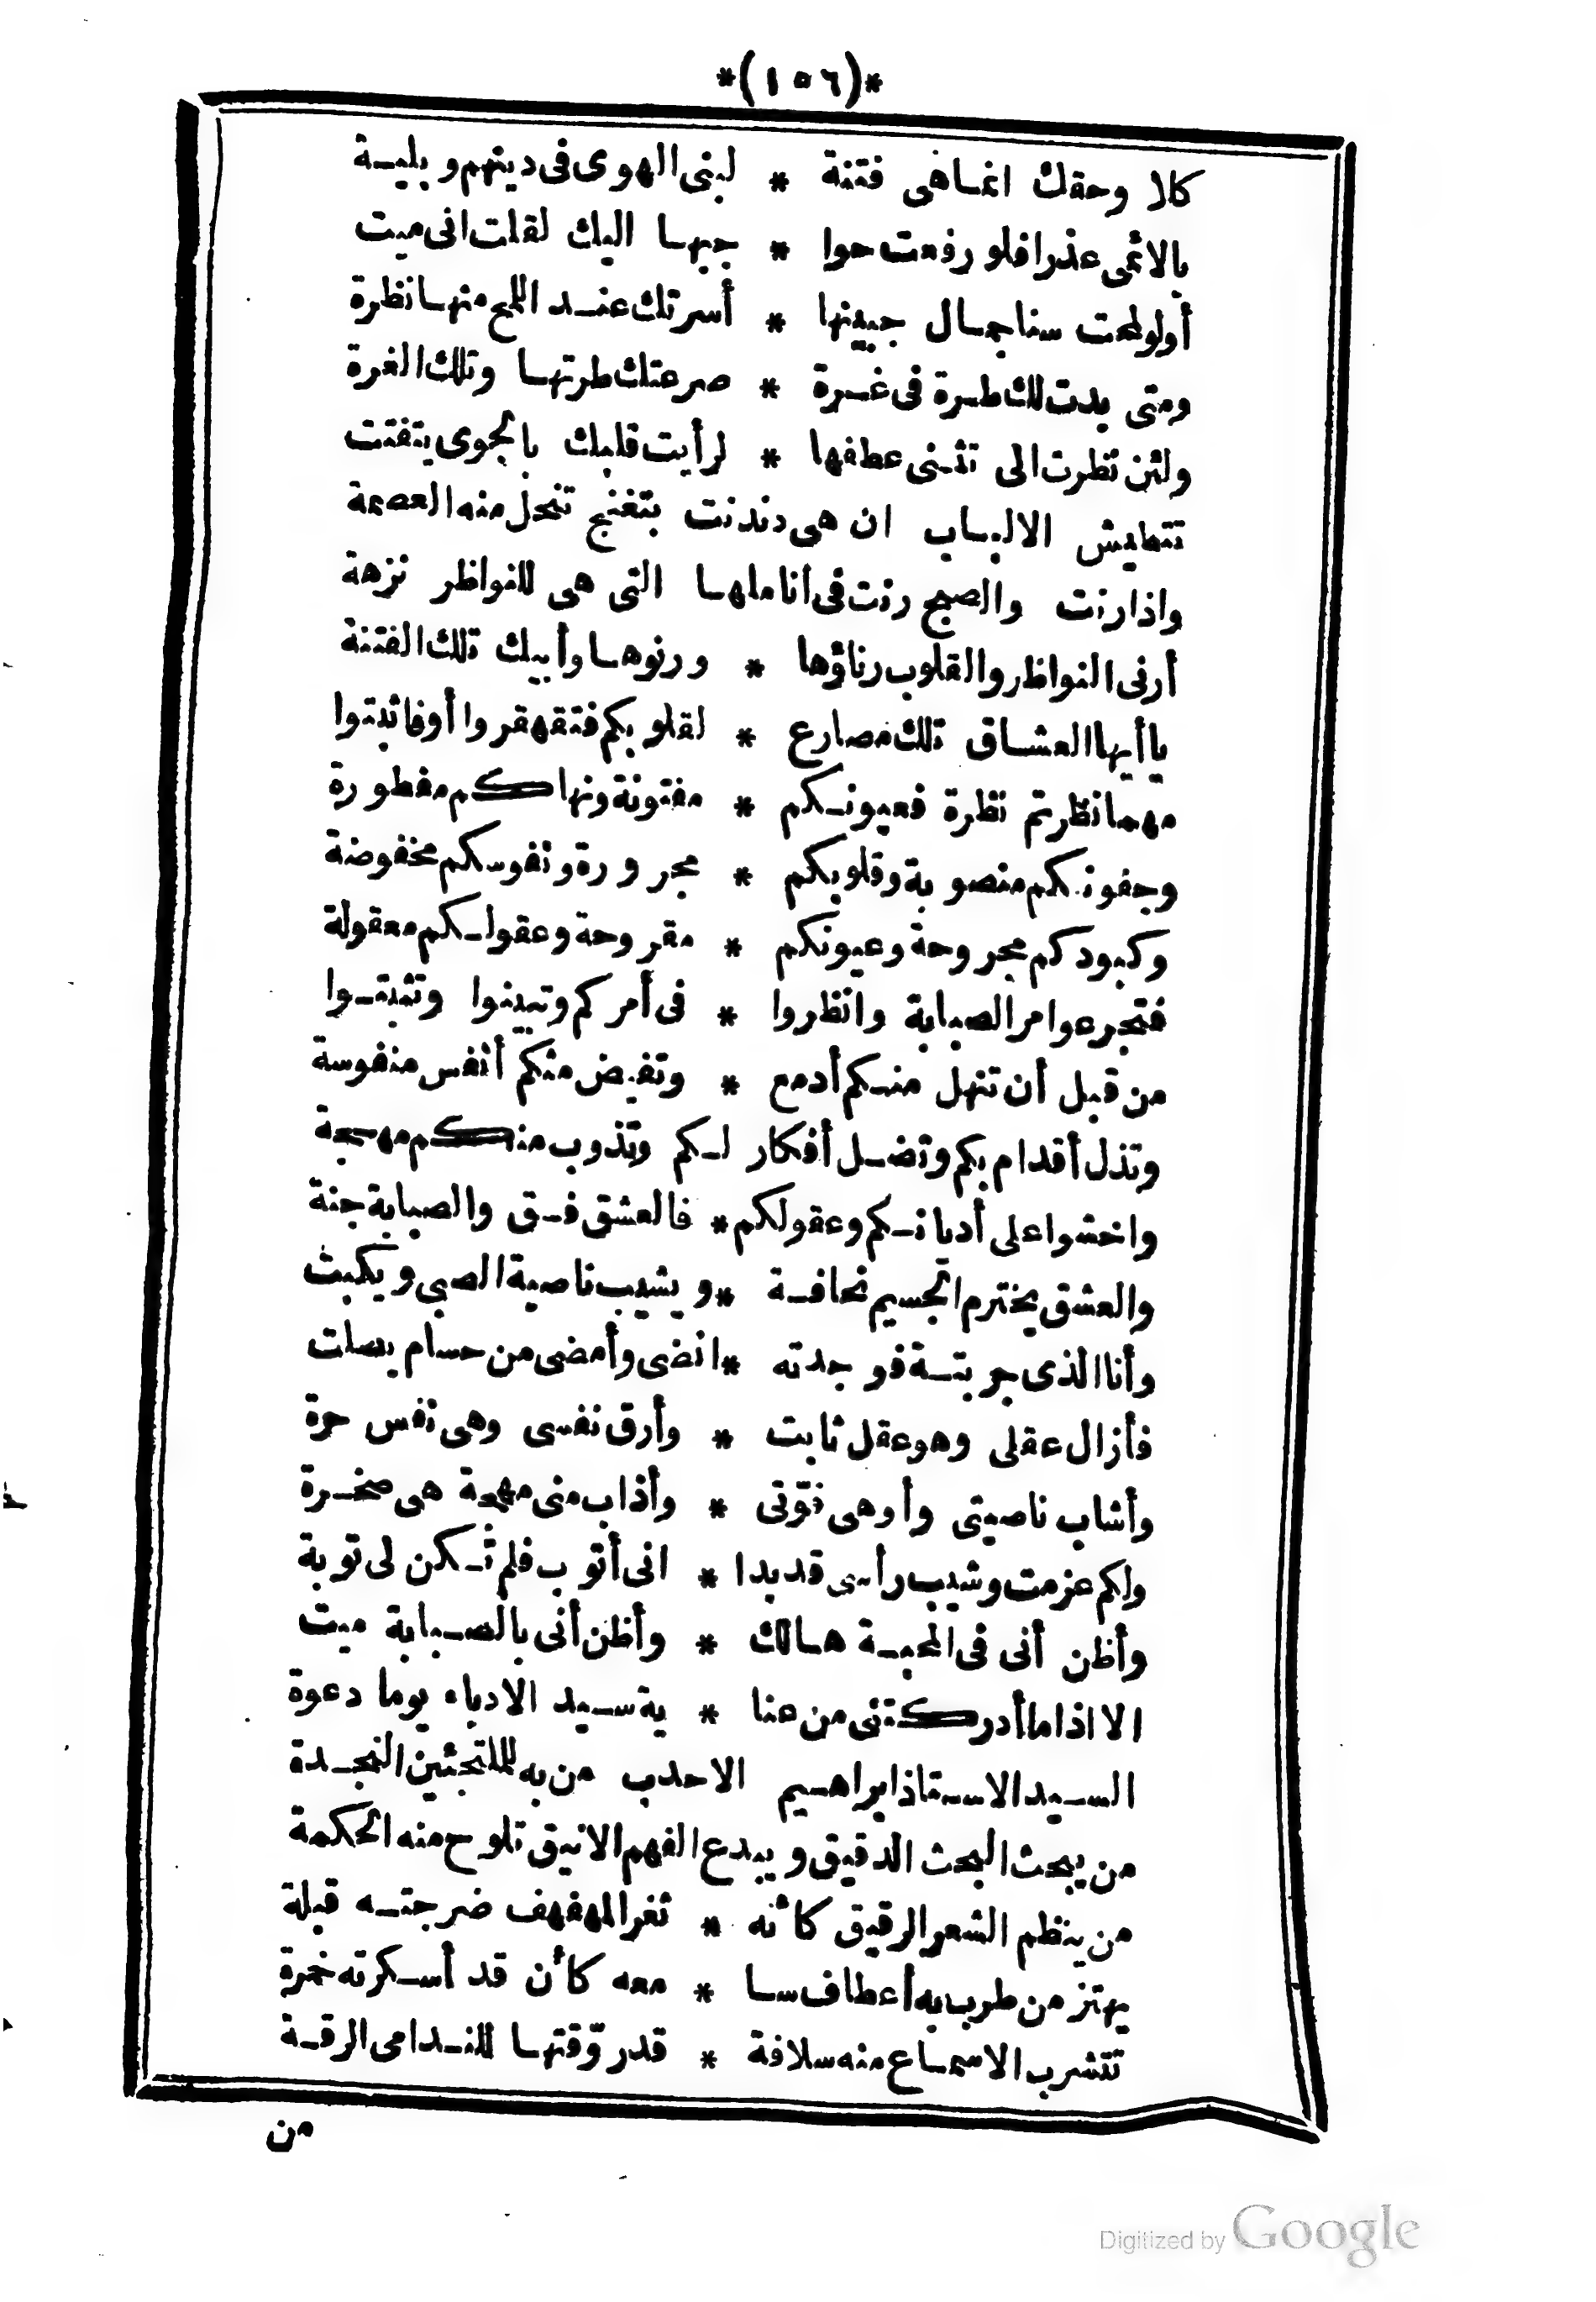 *(١٥٦)*
كلا وحقك انماهى فتنة * لبنى الهوى فى دينهم وبلية
يالائمى عذرا فلو رفعت حوا * جبها اليك لقلت انى ميت
أولولمحت سنا جمال جبينها * أسرتك عند اللمح منها نظرة
ومتى بدت لك طرة فى غرة * صرعتك طرتها وتلك الغرة
ولئن نظرت الى تثنى عطفها * لرأيت قلبك بالجوى يتفتت
تتطيش الالباب ان هى دندنت بتغنج تنحل منه العصمة
واذا رنت والصبح رنت فى أناملها التى هى للنواظر نزهة
أرنى النواظر والقلوب رناؤها * ورنوها وأبيك تلك الفتنة
ياأيها العشاق تلك مصارع * لقلوبكم فتقهقروا أوفاثبتوا
مهما نظرتم نظرة فعيونكم * مفتونة ونهاكم مفطورة
وجفونكم منصوبة وقلوبكم * مجرورة ونفوسكم مخفوضة
وكبودكم مجروحة وعيونكم * مقروحة وعقولكم معقولة
فتجرعوا مر الصبابة وانظروا * فى أمركم وتبينوا وتثبتوا
من قبل أن تنهل منكم أدمع * وتفيض منكم أنفس منفوسة
وتذل أقدام بكم وتضل أفكار لكم وتذوب منكم مهجة
واخشوا على أديانكم وعقولكم * فالعشق فسق والصبابة جنة
والعشق يخترم الجسيم نحافة * ويشيب ناصية الصبى ويكبت
وأنا الذى جربته فوجدته * انضى وأمضى من حسام يصلت
فأزال عقلى وهو عقل ثابت * وأرق نفسى وهى نفس حرة
وأشاب ناصيتى وأوهى قوّتى * وأذاب منى مهجة هى صخرة
ولكم عزمت وشيب رأسى قد بدا * انى أتوب فلم تكن لى توبة
وأظن أنى فى المحبة هالك * وأظن أنى بالصبابة ميت
الا اذا ما أدركتنى من عنا * ية سيد الادباء يوما دعوة
السيد الاستاذ ابراهيم الاحدب من به للملتجئين النجدة
من يبحث البحث الدقيق ويبدع الفهم الانيق تلوح منه الحكمة
من ينظم الشعر الرقيق كأنه * ثغر المهفهف ضرجته قبلة
يهتز من طرب به أعطاف سا * معه كأن قد أسكرته خمرة
تتشرب الاسماع منه سلافة * قد روّقتها للندامى الرقة
من
Digitized by Google